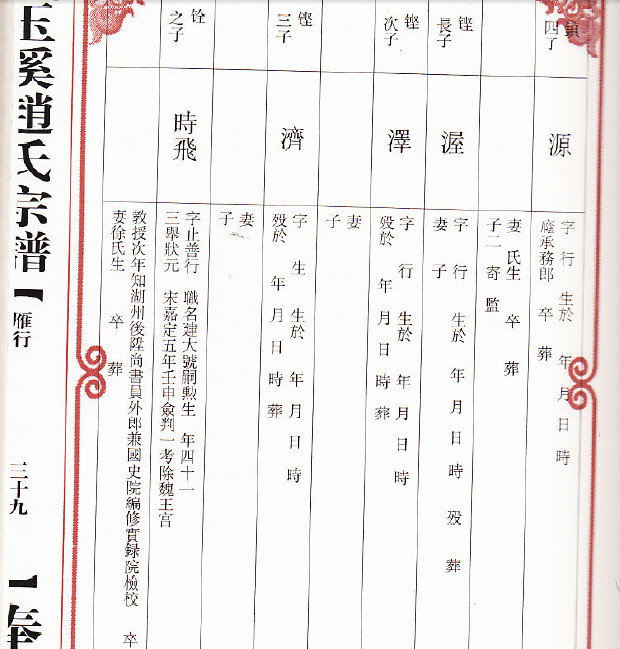 鎮
四子
源
字 行 生於 年 月 日 時
廕承務郎 卒 葬
妻 氏生 卒 葬
子二 寄 監
鏗
長子
渥
字 行 生於 年 月 日 時 殁 葬
妻 子
鏗
次子
澤
字 行 生於 年 月 日 時
殁於 年 月 日 時 葬
妻
子
鏗
三子
濟
字 生 生於 年 月 日 時
殁於 年 月 日 時 葬
妻
子
銓
之子
時飛
字止善行 職名建大號嗣勲生 年四十一
三舉狀元 宋嘉定五年壬申僉判一考除魏王宫
教授次年知湖州後陞尚書員外郎兼國史院編修實録院檢校 卒
妻徐氏生 卒 葬
玉溪趙氏宗譜
雁行
三十九